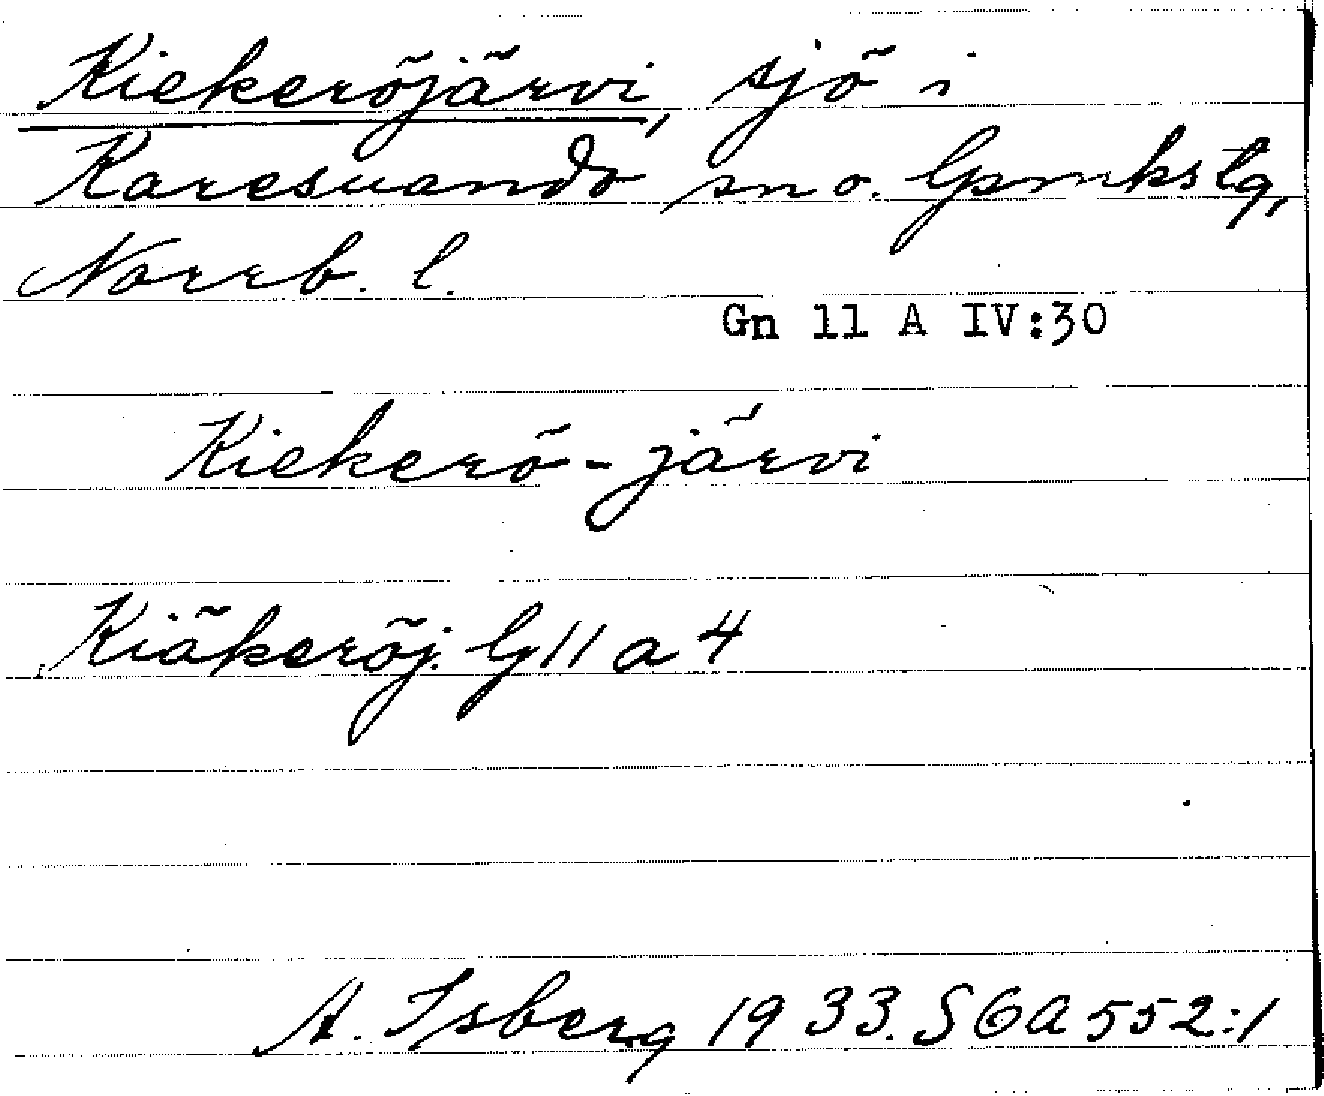 Kiekeröjärvi, sjö i
Karesuando sn o. lpmkstg,
Norrb. l.
Gn 11 A IV:30
Kiekerö-järvi
Kiäkeröj. G 11 a 4
A. Isberg 1933. SGA 552:1